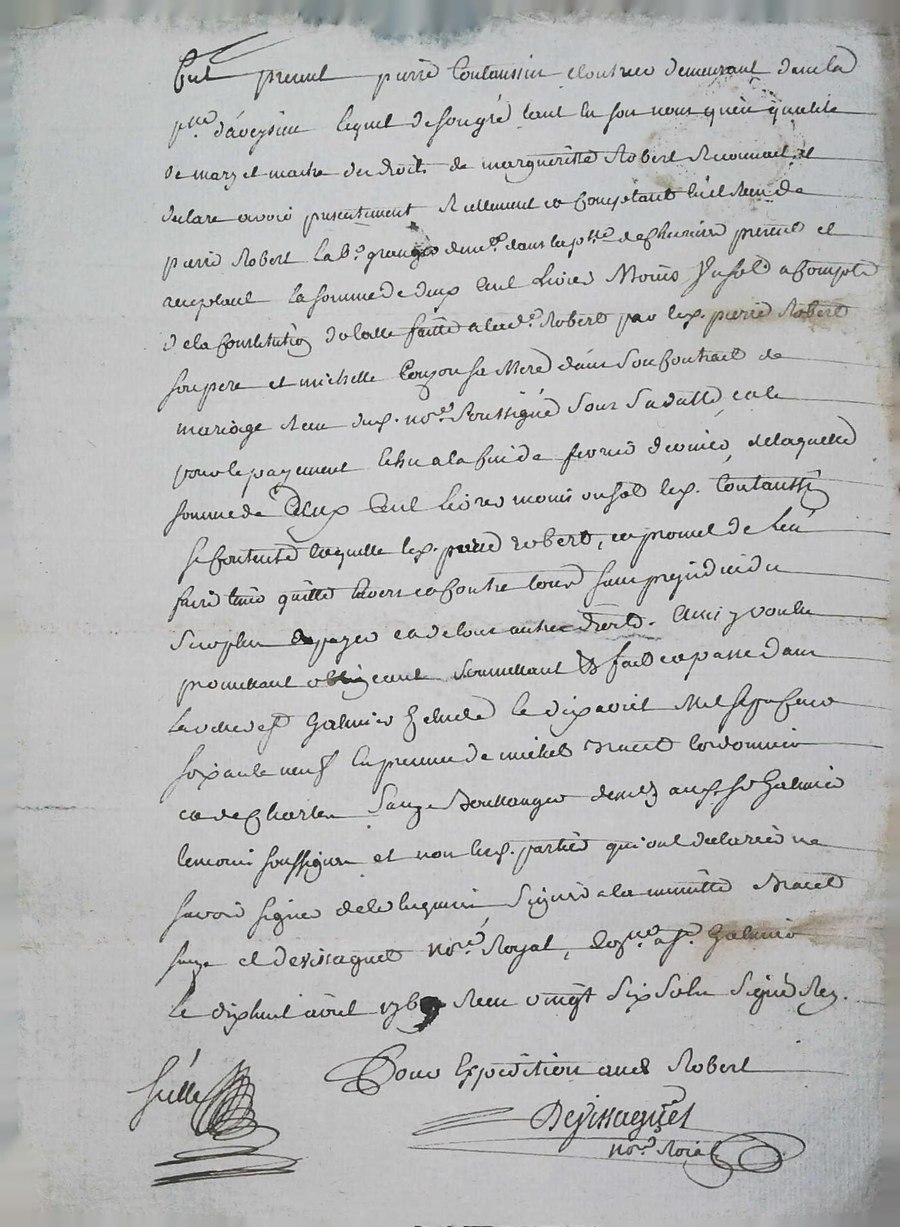 fut present pierre Coutaussin cloutrier demeurant dans la
psse d'aveysieu lequel de son gré tant en son nom qu'en qualité
de mary et maitre des droits de margueritte Robert Reconnait et
declare avoir presentement Reellement et Comptant Receu de
pierre Robert Lab.r granger dem.t dans la p.sse de Chevrier present et
acceptant la somme de deux Cent Livres Moins un sold a Compte
de la Constitution dotalle faitte a lad.e Robert par les pierre Robert
son pere et michelle Couzon sa Mere dans son Contrait de
mariage Receu dud. no.re soussigné sous sa datte et le
pour le payement Echu a la fin de fevrier dernier, de laquelle
somme de deux Cent Livres moins un sold led. Coutaussin
se Contente En quitte led. pierre robert, et promet de L'en
faire tenir quitte Envers et Contre tous sans prejudice du
surplus a payer et de tous autres droits. Ainsi voulu
promettant obligeant soumettant & fait et passé dans
La ville de St Galmier Etude le dix avril Mil sept Cent
soixante neuf En presence de michel Bracet Cordonnier
et de Charles Sauze Boullanger dem.ts aud. St Galmier
temoins soussignes et non lesd. parties qui ont declarées ne
savoir signer de ce Enquis Signé a la minutte Bracet
Sauze et Devissaguet no.re Royal, Con.lé a St. Galmier
Le dixhuit avril 1769 Receu vingt six sols Signé Rey.
Pour Expedition aud Robert
Scellé
Devissaguet
no.re Roial